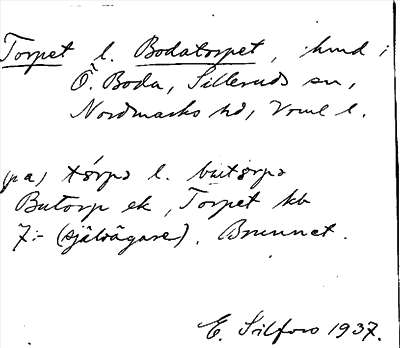 Torpet l. Bodatorpet, hmd i
Ö. Boda, Silleruds sn,
Nordmarks hd, Vrml l.
(pa) tórpə l. butórpə
Butorp ek, Torpet kb
7:- (självägare). Brunnet.
E. Silfors 1937.